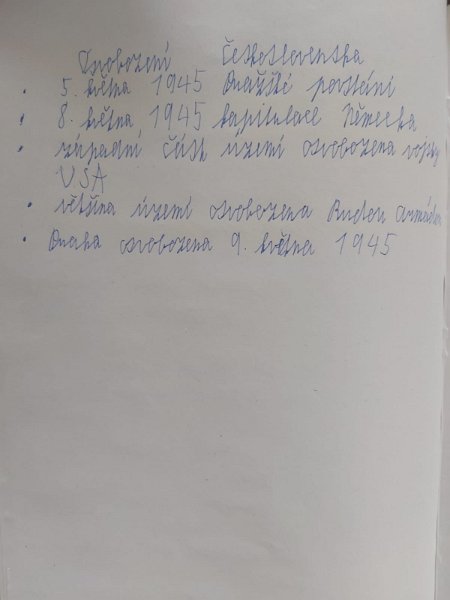 Osvobození Československa
• 5. května 1945 Pražské povstání
• 8. května 1945 kapitulace Německa
• západní část území osvobozena vojsky
USA
• většina území osvobozena Rudou armádou
• Praha osvobozena 9. května 1945